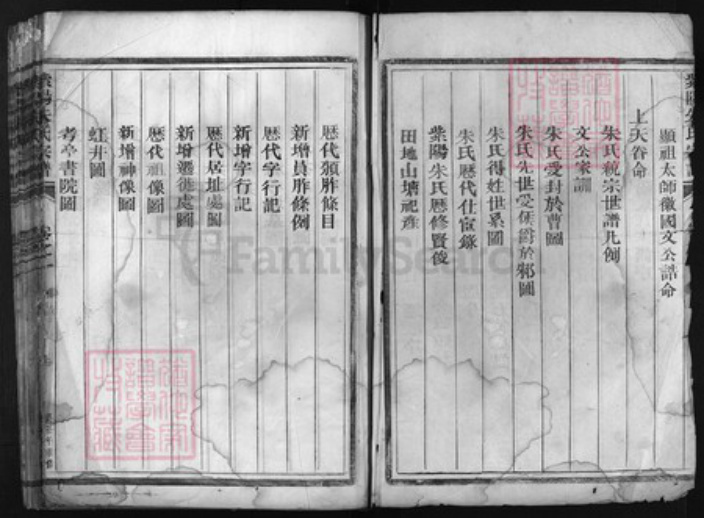 顯祖太師徽國文公誥命
上天眷命
朱氏統宗世譜凡例
文公家訓
朱氏受封於曹圖
朱氏先世受侯爵於邾圖
朱氏得姓世系圖
朱氏歷代仕宦錄
紫陽朱氏歷修賢俊
田地山塘祀產
歷代頒胙條目
新增員胙條例
歷代字行記
新增字行記
歷代居址處圖
新增遷徙處圖
歷代祖像圖
新增神像圖
虹井圖
考亭書院圖
FamilySearch